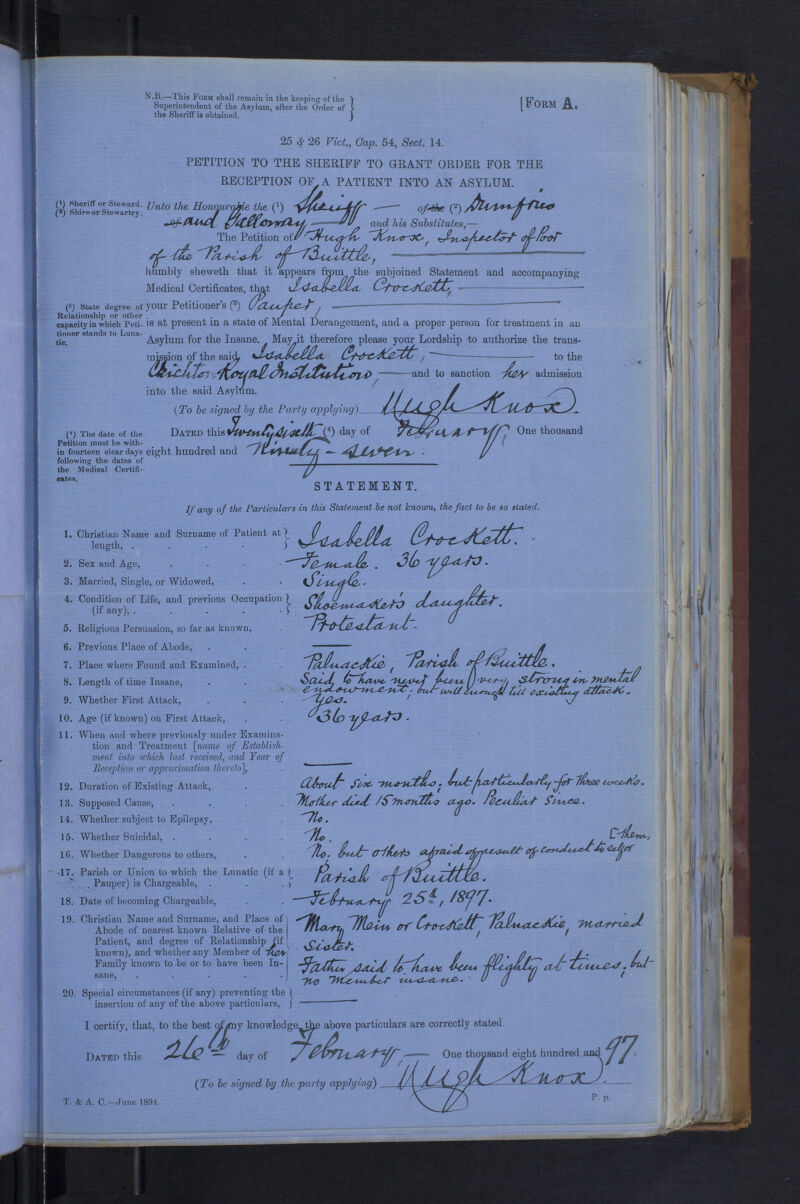 N.B.—This Form shall remain in the keeping of the
Superintendent of the Asylum, after the Order of
the Sheriff is obtained.
[Form A.
25 & 26 Vict., Cap. 54, Sect. 14.
PETITION TO THE SHERIFF TO GRANT ORDER FOR THE
RECEPTION OF A PATIENT INTO AN ASYLUM.
(1) Sheriff or Steward.
(2) Shire or Stewartry.
Unto the Honourable the (1) Sheriff — of the (2) Dumfries
of and Galloway — and his Substitutes,—
The Petition of Hugh Knox, Inspector of Poor
of the Parish of Buittle,
humbly sheweth that it appears from the subjoined Statement and accompanying
Medical Certificates, that Isabella Crockett,
(3) State degree of
Relationship or other
capacity in which Peti-
tioner stands to Luna-
tic.
your Petitioner's (3) Pauper,
is at present in a state of Mental Derangement, and a proper person for treatment in an
Asylum for the Insane. May it therefore please your Lordship to authorize the trans-
mission of the said, Isabella Crockett, — to the
Crichton Royal Institution, — and to sanction her admission
into the said Asylum.
(To be signed by the Party applying) Hugh Knox.
(4) The date of the
Petition must be with-
in fourteen clear days
following the dates of
the Medical Certifi-
cates.
Dated this Twenty sixth (4) day of February, One thousand
eight hundred and Ninety-seven.
STATEMENT.
If any of the Particulars in this Statement be not known, the fact to be so stated.
1. Christian Name and Surname of Patient at
length, . Isabella Crockett.
2. Sex and Age, Female. 36 years.
3. Married, Single, or Widowed, Single.
4. Condition of Life, and previous Occupation
(if any), . Shoemaker's daughter.
5. Religious Persuasion, so far as known, Protestant.
6. Previous Place of Abode, —
7. Place where Found and Examined, . Palnackie, Parish of Buittle.
8. Length of time Insane, Said to have never been very strong in mental
endowment; but well enough till existing attack.
9. Whether First Attack, Yes.
10. Age (if known) on First Attack, 36 years.
11. When and where previously under Examina-
tion and Treatment [name of Establish-
ment into which last received, and Year of
Reception or approximation thereto], —
12. Duration of Existing Attack, About six months; but particularly for three weeks.
13. Supposed Cause, Mother died 15 months ago. Peculiar since.
14. Whether subject to Epilepsy, No.
15. Whether Suicidal, . No.
16. Whether Dangerous to others, No. but others afraid of result of conduct to self or
[them.
17. Parish or Union to which the Lunatic (if a
Pauper) is Chargeable, . Parish of Buittle.
18. Date of becoming Chargeable, February 25th, 1897.
19. Christian Name and Surname, and Place of
Abode of nearest known Relative of the
Patient, and degree of Relationship (if
known), and whether any Member of her
Family known to be or to have been In-
sane,
Mary Mein or Crockett, Palnackie, married
Sister.
Father said to have been flighty at times; but
no member insane.
20. Special circumstances (if any) preventing the
insertion of any of the above particulars, —
I certify, that, to the best of my knowledge, the above particulars are correctly stated.
Dated this 26th day of February, — One thousand eight hundred and 97.
(To be signed by the party applying) Hugh Knox.
T. & A. C.—June 1894.
P. p.